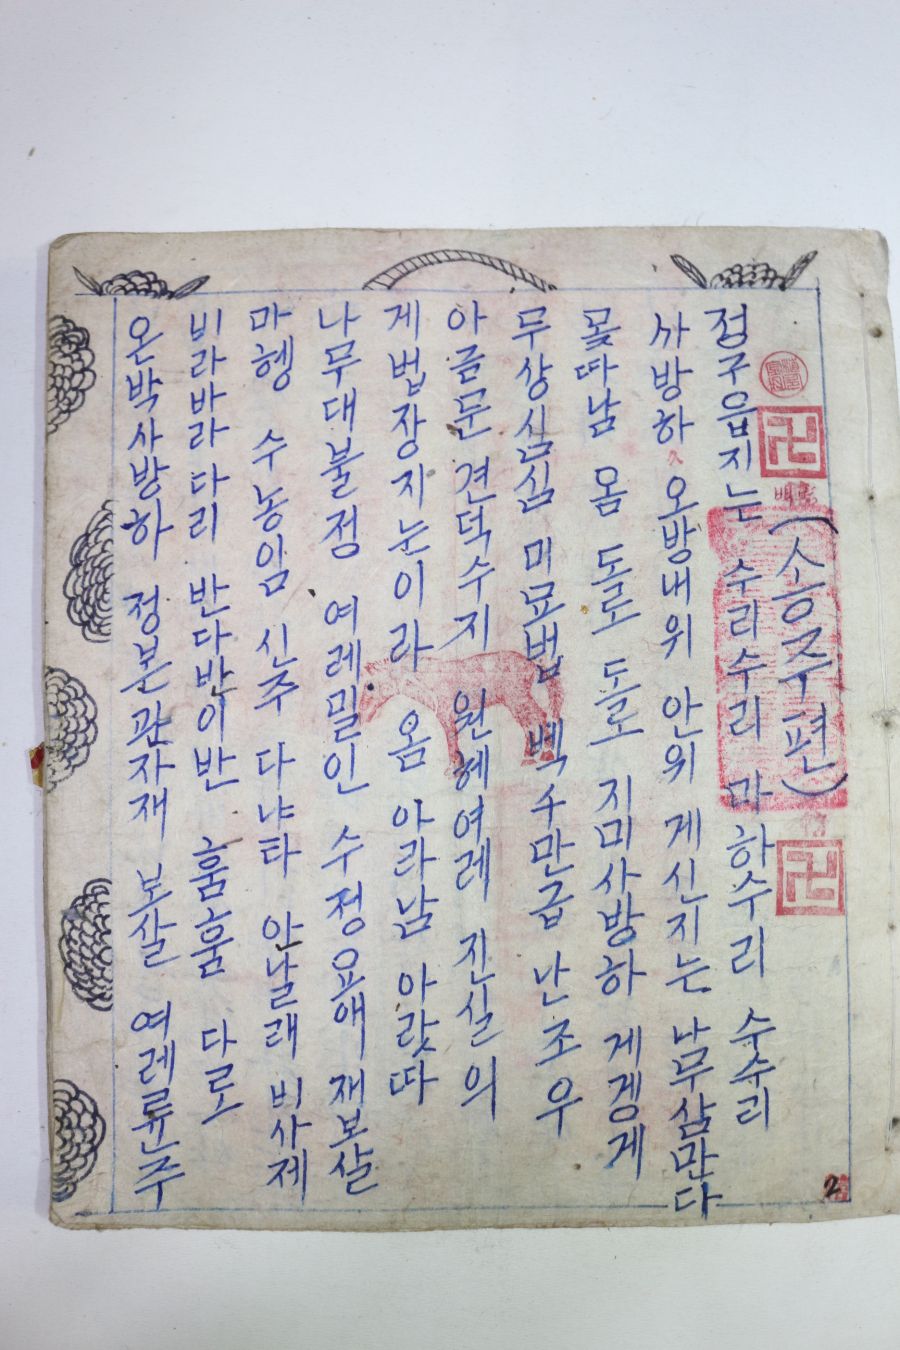 (송주편)
정구읍지는 수리수리 마하수리 수수리
사방하 오방내위 안위 게신지는 나무삼만다
못따남 옴 도로 도로 지미사방하 게겡게
무상심심 미묘법 백수만급 난조우
아금문 견덕수지 원헤여레 진실의
게법장지는이라 옴 아라남 아랏따
나무대불정 여레밀인 수정요애 재보살
마헹 수능임 신주 다냐타 안날래 비사제
비라바라다리 반다반이반 훔훔 다로
온박사방하 정본관자재 보살 여레류주
2